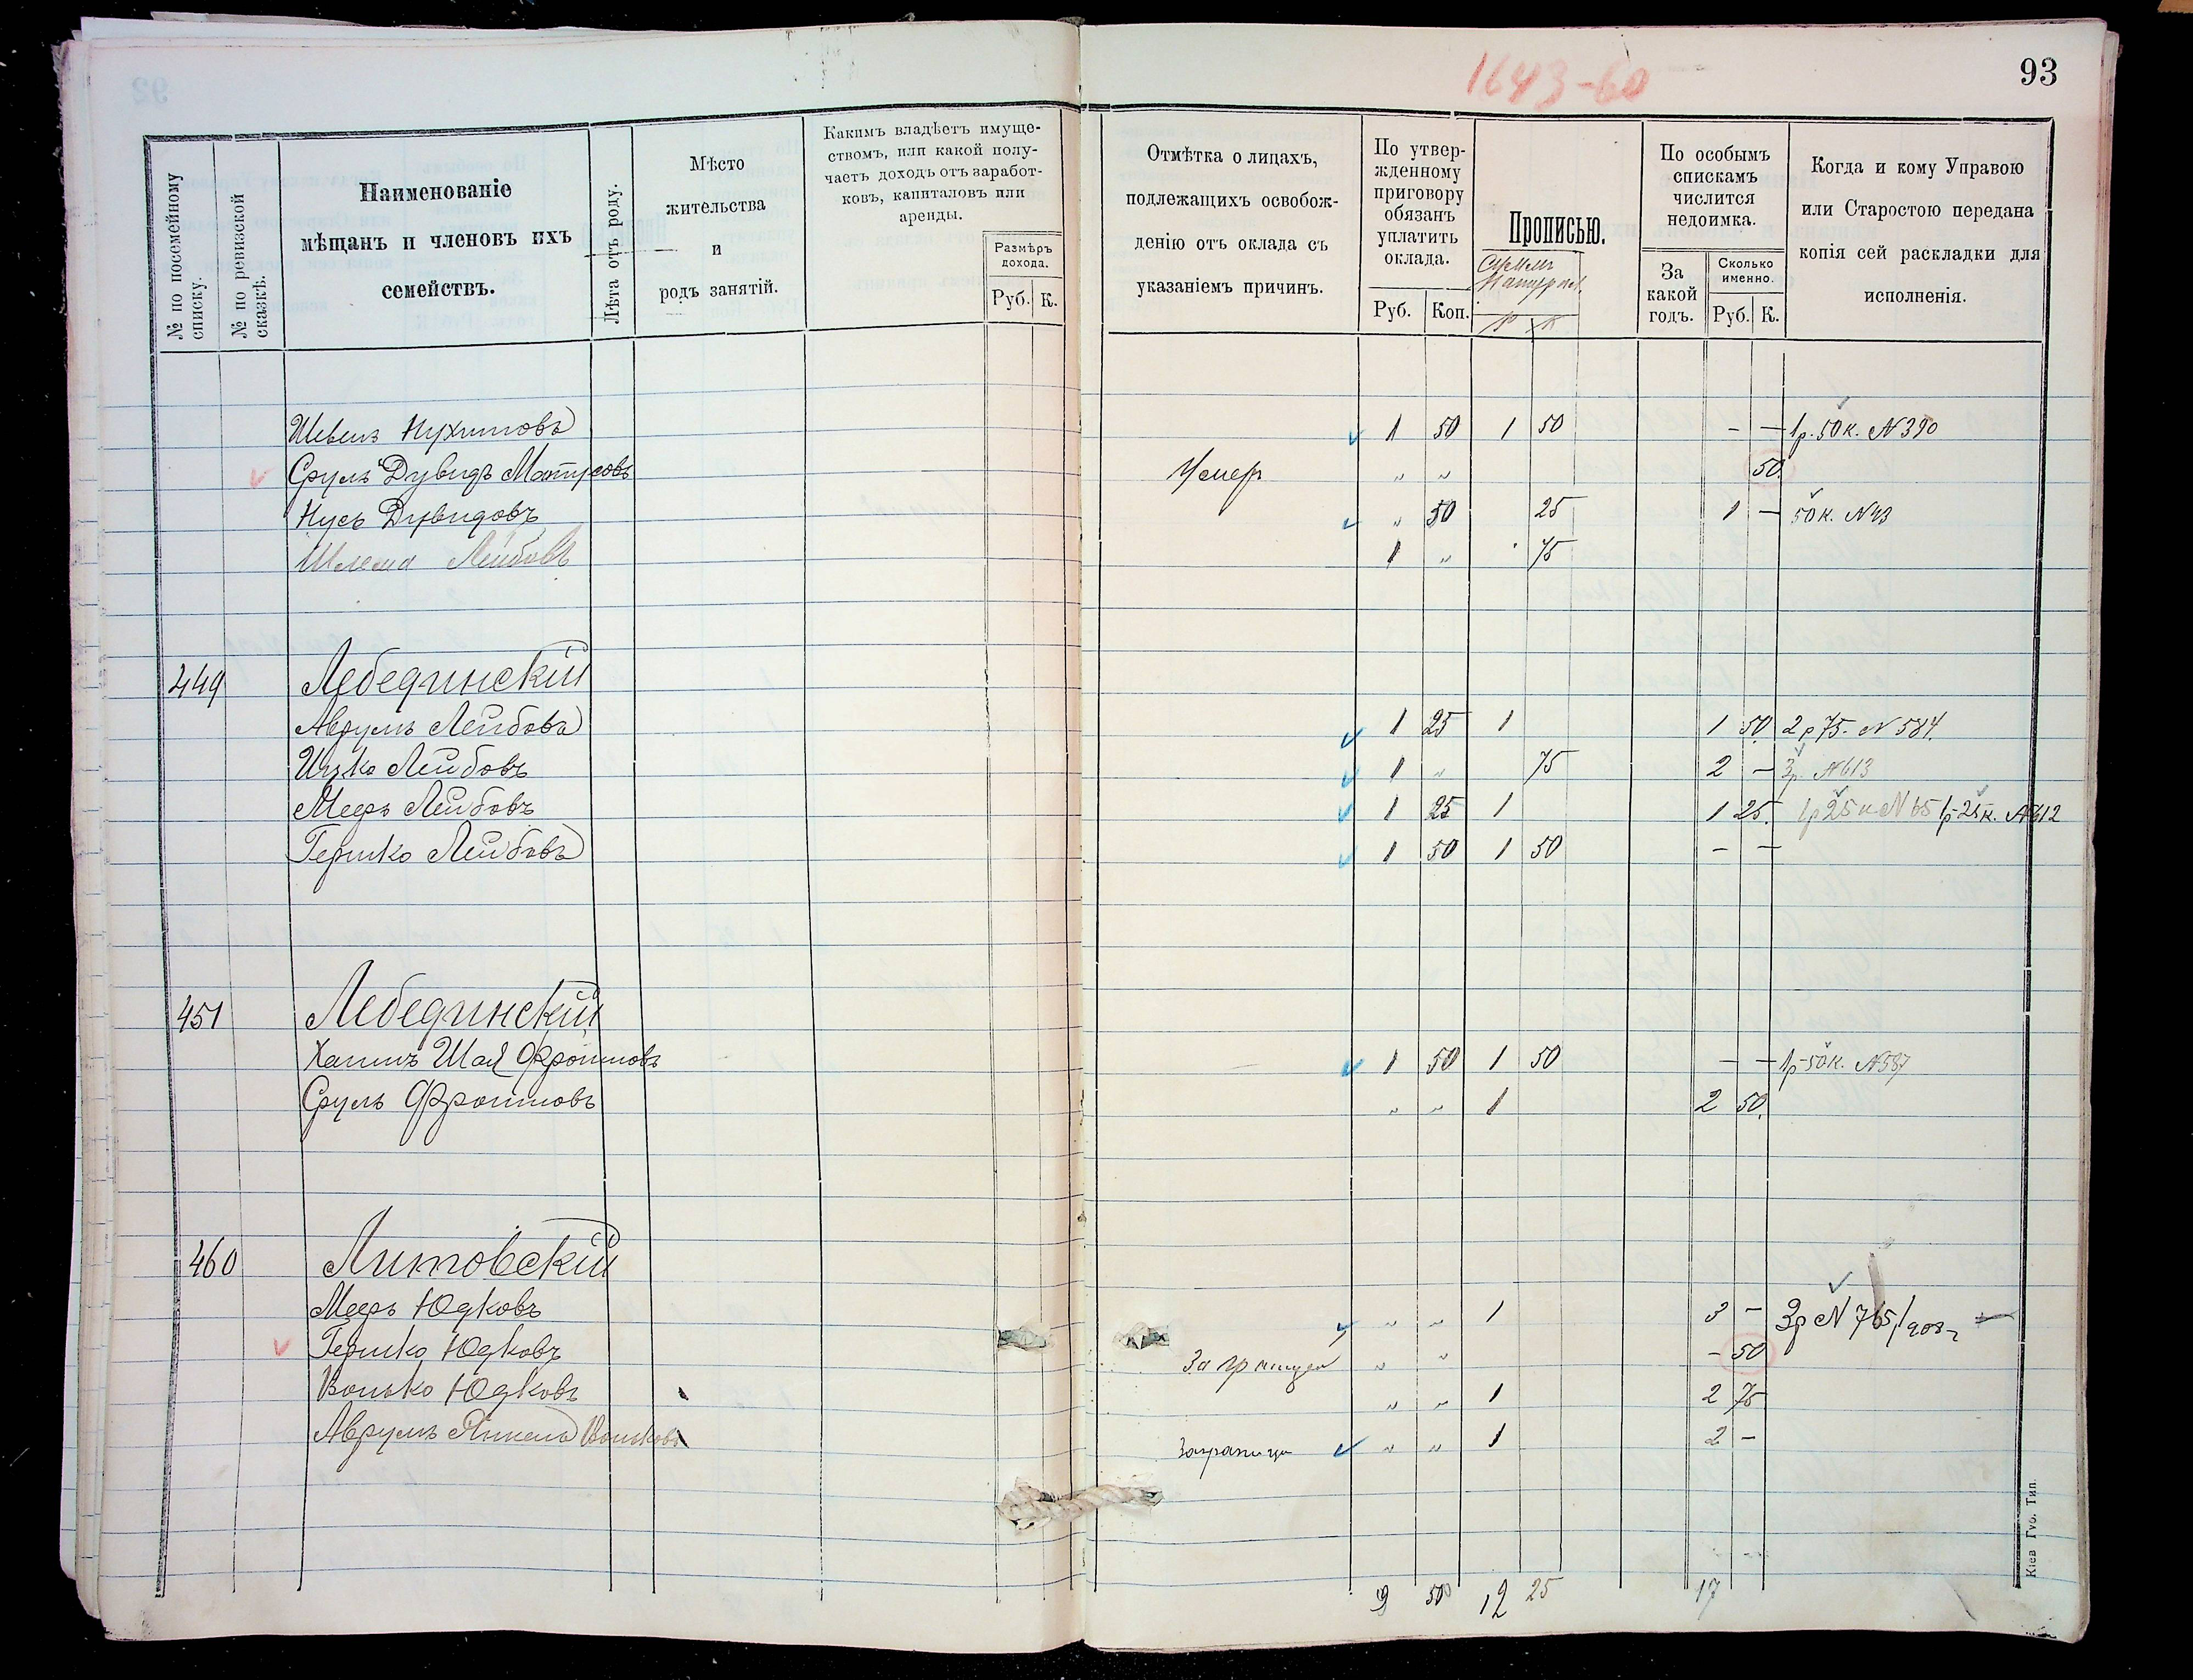 1643-60
93
№ по посемейному списку.
№ по ревизской сказкѣ.
Наименованіе мѣщанъ и членовъ ихъ семействъ.
Лѣта отъ роду.
Мѣсто жительства и родъ занятій.
Какимъ владѣетъ имуществомъ, или какой получаетъ доходъ отъ заработковъ, капиталовъ или аренды.
Размѣръ дохода.
Руб. К.
Отмѣтка о лицахъ, подлежащихъ освобожденію отъ оклада съ указаніемъ причинъ.
По утвержденному приговору обязанъ уплатить оклада.
Руб. Коп.
Прописью.
Р К
По особымъ спискамъ числится недоимка.
За какой годъ.
Сколько именно.
Руб. К.
Когда и кому Управою или Старостою передана копія сей раскладки для исполненія.
Шевель Нухимовъ 1 50 1 50 - - 1р. 50к. N 390
Сруль Дувидъ Матусовъ Умеръ " " 50.
Нусь Дувидовъ " 50 25 1 - 50 к. N 43
Шлема Лейбовъ 1 " 75
449 Лебединскій
Аврумъ Лейбовъ 1 25 1 1 50 2р 75. N 584.
Ицко Лейбовъ 1 " 75 2 - 3р. N 613
Мееръ Лейбовъ 1 25 1 1 25. 1р 25к N 65 1р-25к. N 612
Гершко Лейбовъ 1 50 1 50 - -
451 Лебединскій
Хаимъ Шая Фроимовъ 1 50 1 50 - - 1р-50к. N 587
Сруль Фроимовъ " " 1 2 50.
460 Литовскій
Мееръ Юдковъ " " 1 3 - 3р N 765/908
Гершко Юдковъ За границей " " - 50
Волько Юдковъ " " 1 2 75
Аврумъ Янкель Вольковъ заграницу " " 1 2 -
9 50 12 25 17
Кіев Губ. Тип.